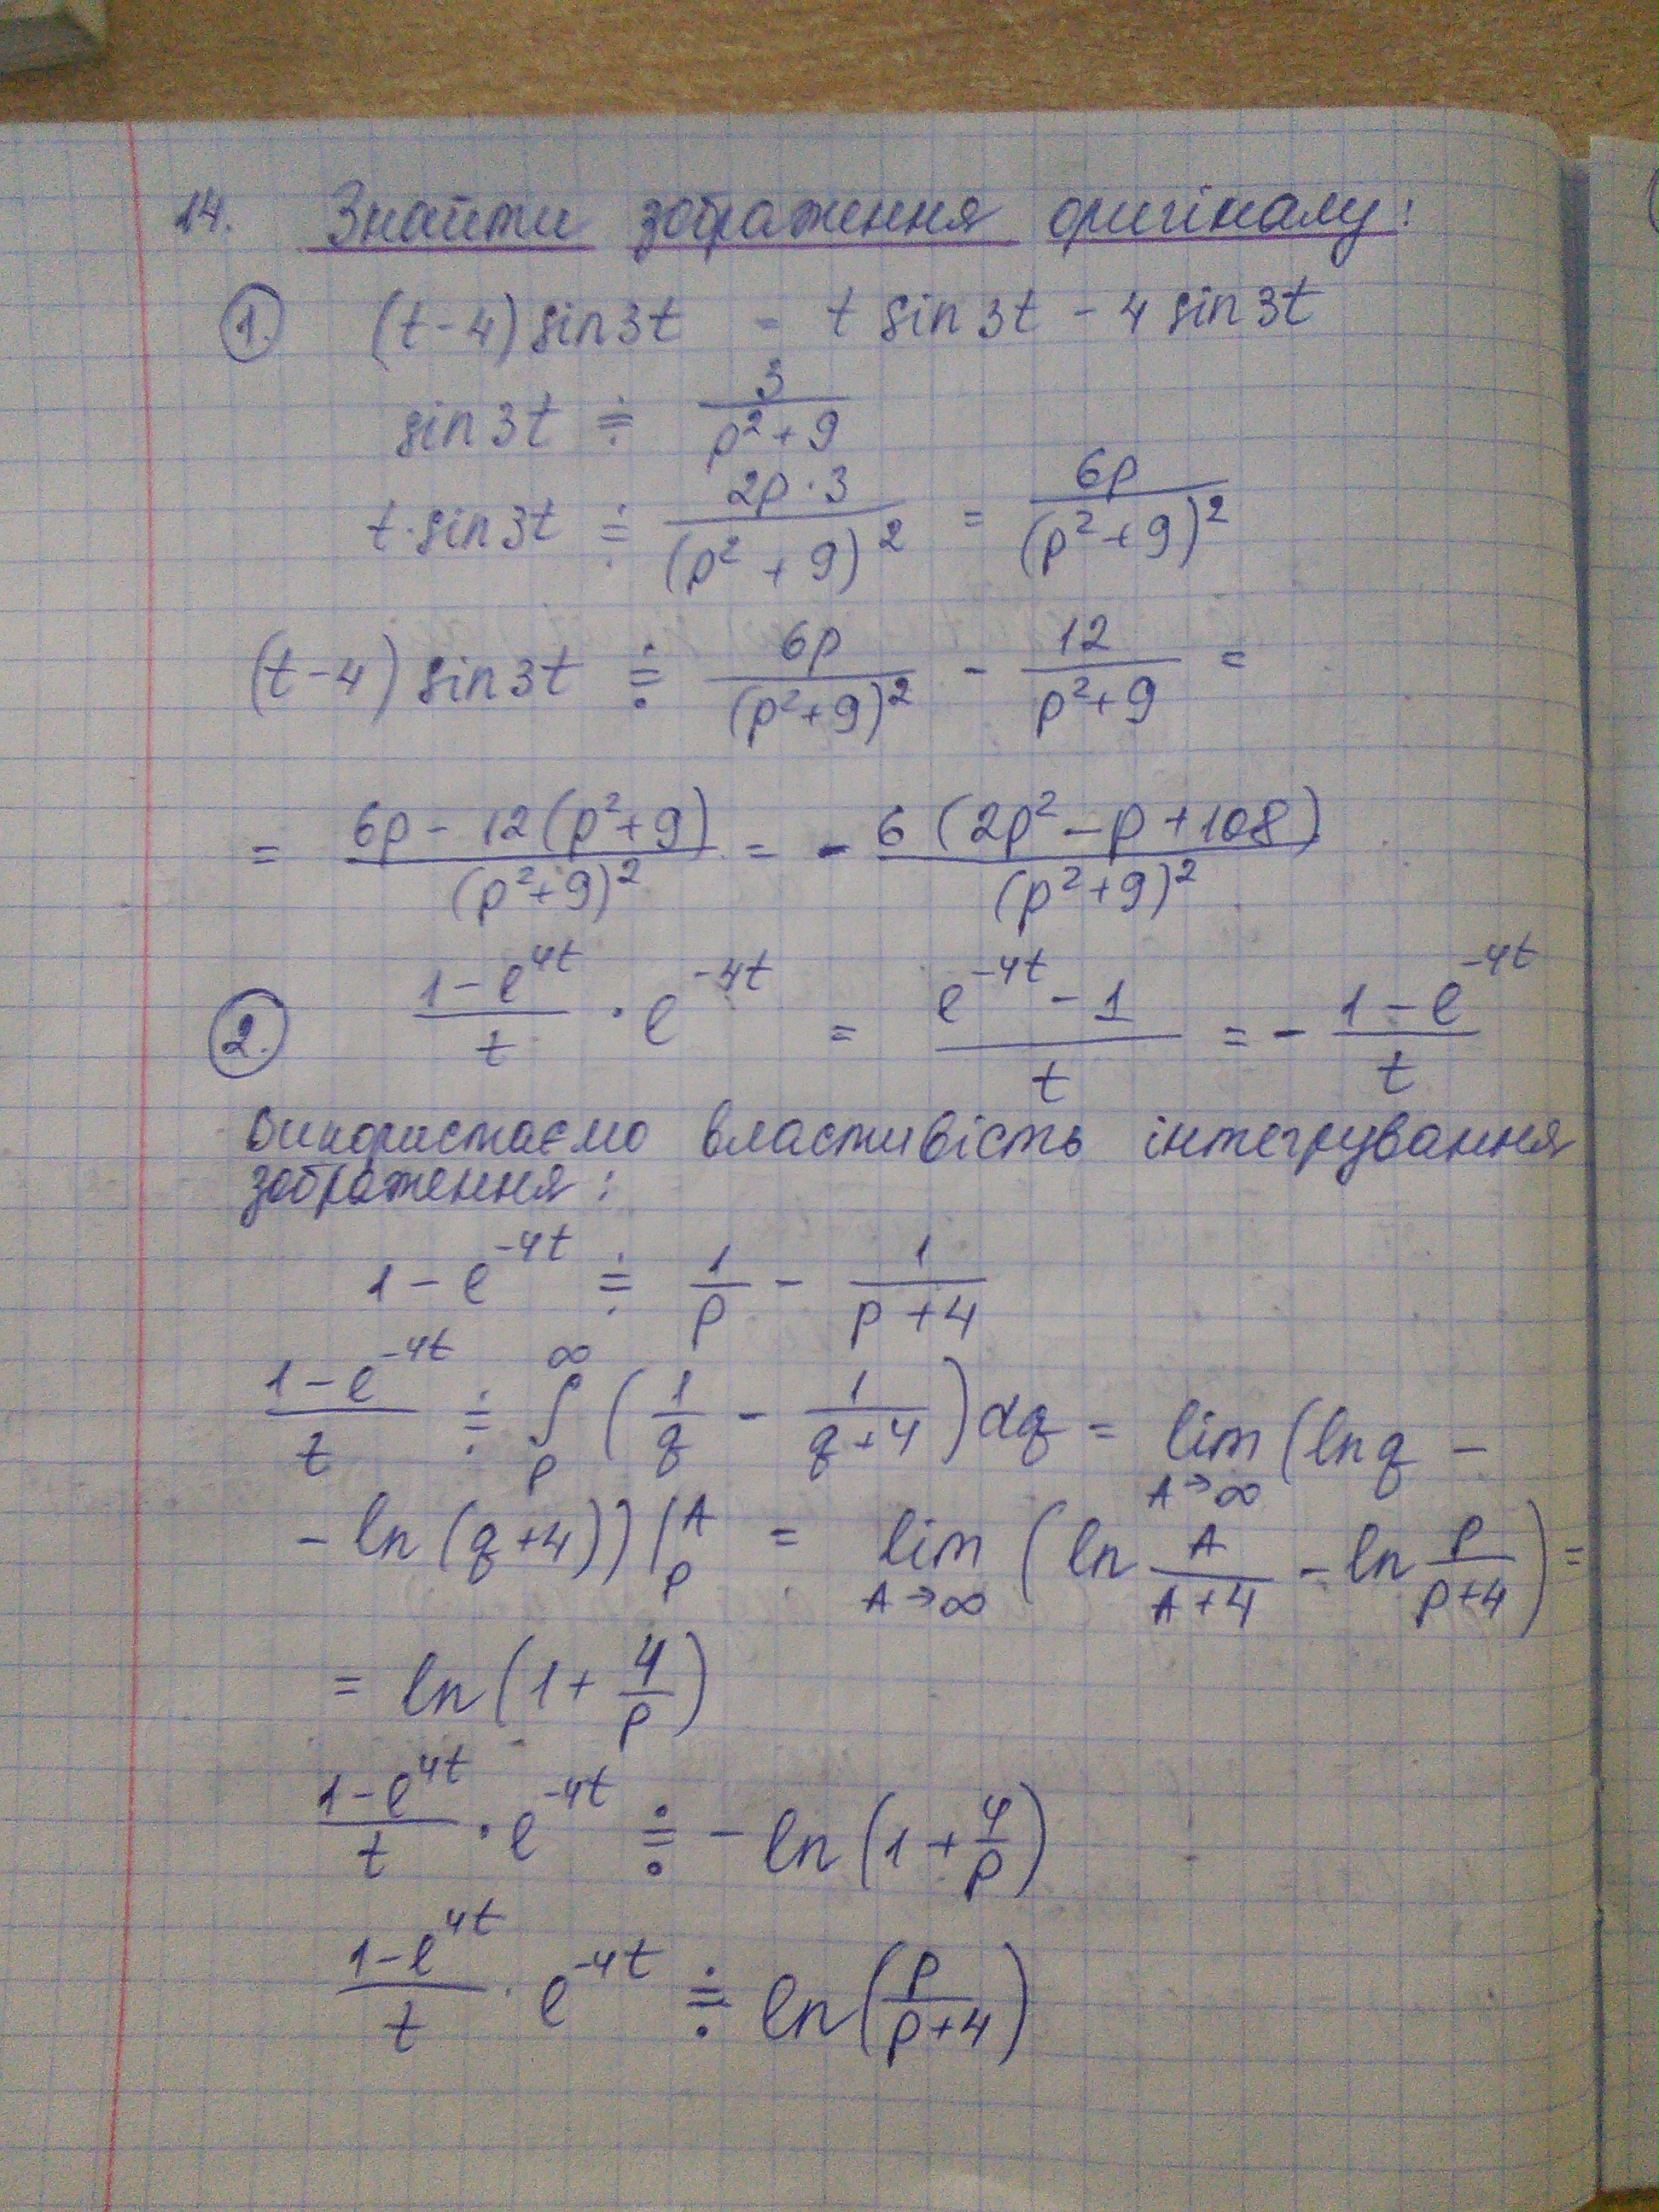 14. Знайти зображення оригіналу:
1. (t-4) sin3t = t sin3t - 4 sin3t
sin3t ≓ 3/(p²+9)
t·sin3t ≓ (2p·3)/(p²+9)² = 6p/(p²+9)²
(t-4) sin3t ≓ 6p/(p²+9)² - 12/(p²+9) =
= (6p - 12(p²+9))/(p²+9)² = - 6(2p² - p + 108)/(p²+9)²
2. (1-e^{4t})/t · e^{-4t} = (e^{-4t} - 1)/t = - (1-e^{-4t})/t
Використаємо властивість інтегрування
зображення:
1 - e^{-4t} ≓ 1/p - 1/(p+4)
(1-e^{-4t})/t ≓ ∫_p^∞ (1/q - 1/(q+4))dq = lim_{A→∞} (ln q -
- ln(q+4))|_p^A = lim_{A→∞} (ln A/(A+4) - ln p/(p+4)) =
= ln(1 + 4/p)
(1-e^{4t})/t · e^{-4t} ≓ - ln(1 + 4/p)
(1-e^{4t})/t · e^{-4t} ≓ ln(p/(p+4))